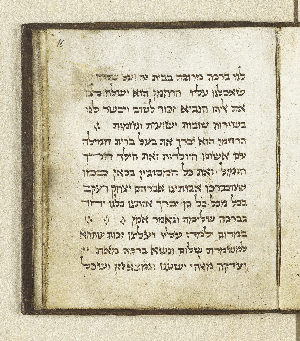 לנו ברכה מרובה בבית זה ועל שלחן
שאכלנו עליו הרחמן הוא ישלח לנו
את אליהו הנביא זכור לטוב ויבשר לנו
בשורות טובות ישועות ונחמות
הרחמן הוא יברך את בעל ברית המילה
עם אשתו היולדת ואת הילד
הנמול ואת כל המסובין כאן כמו
שנתברכו אבותינו אברהם יצחק ויעקב
בכל מכל כל כן יברך אותנו כלנו יחד
בברכה שלימה ונאמר אמן
במרום ילמדו עליו ועלינו זכות שתהא
למשמרת שלום ונשא ברכה מאת יי
וצדקה מאלהי ישענו ונמצא חן ושכל